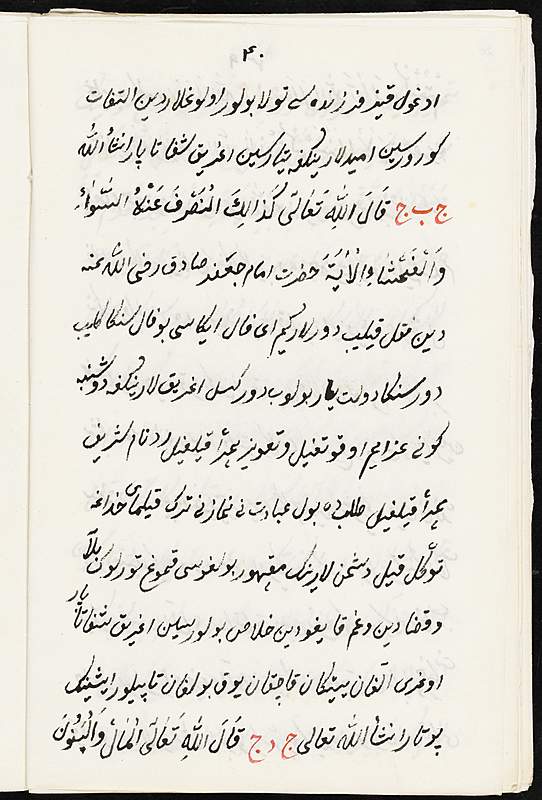 ۴۰
اوغول قیز فرزنده سی تولا بولور اولوغلاردین التفات
کورورسین امیدلارینکغه یتارسین اغریق شفا تاپار انشأ الله
ج ب ج قَالَ اللهُ تَعَالَی کَذَالِكَ لِنَصْرِفَ عَنْهُ السُّوٓاءَ
وَالْفَحْشَاءَ اَلْاٰیَة حضرت امام جعفر صادق رضی الله عنه
دین نقل قیلیب دورلار کیم ای فال ایکاسی بو فال سنکا کلیب
دور سنکا دولت یار بولوب دور کسل اغریق لارینکغه دوشنبه
کونی عزایم اوقوتغیل و تعویذ پیدأ قیلغیل نام شریف
پیدأ قیلغیل طلب ده بول عبادت نی نماز نی ترک قیلمای خداغه
توکّل قیل دشمن لارینک مقهور بولغوسی قموغ تورلوک بلا
و قضا دین و غم قایغودین خلاص بولورسین اغریق شفا تاپار
اوغری آلغان ییتکان قاچقان یوق بولغان تاپیلور ایشینک
پوتار انشأ الله تعالی ج د ج قَالَ اللهُ تَعَالَی اَلْمَالُ وَالْبَنُونَ